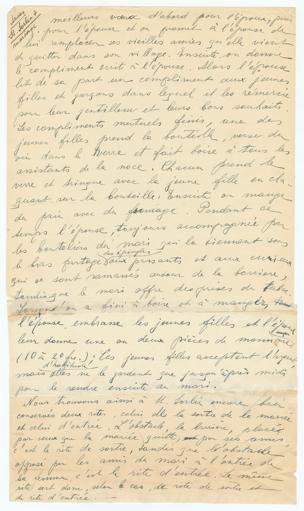 meilleurs vœux d'abord pour l'époux, puis
pour l'épouse et on promet à l'épouse de
lui remplacer ses vieilles amies qu'elle vient
de quitter dans son village. Ensuite on donne
le compliment écrit à l'épouse. Alors l'épouse
lit de sa part un compliment aux jeunes
filles et garçons dans lequel et les remercie
pour leur gentillesse et leurs bons souhaits.
Les compliments mutuels finis, une des
jeunes filles prend la bouteille, verse du
vin dans le verre et fait boire à tous les
assistants de la noce. Chacun prend le
verre et trinque avec la jeune fille en cho-
quant sur la bouteille. Ensuite on mange
du pain avec du fromage. Pendant ce
temps l'épouse, toujours accompagnée par
les mais qui la tiennent sous
le bras partage aux passants et aux curieux
qui se sont ramassés autour de la barrière,
tandis que le mari offre des prises de tabac.
Lorsqu'on a fini à boire et à manger,
l'épouse embrasse les jeunes filles et l'époux
leur donne une ou deux pièces de monnaie
(10 à 20 frs.); les jeunes filles acceptent
mais elles ne le gardent que jusqu'après midi
d'habitude
pour le rendre ensuite au mari.
Nous trouvons ainsi à encore bien
conservés deux rites, celui de la sortie de la mariée
et celui d'entrée. L'obstacle, la barrière, placée
par ceux que la mariée quitte, par ses amies
c'est le rite de sortie, tandis que l'obstacle
opposé par les amis du mari à l'entrée de
la , c'est le rite d'entrée. Le même
rite est donc, selon le cas, de rite de sortie et
de rite d'entrée.